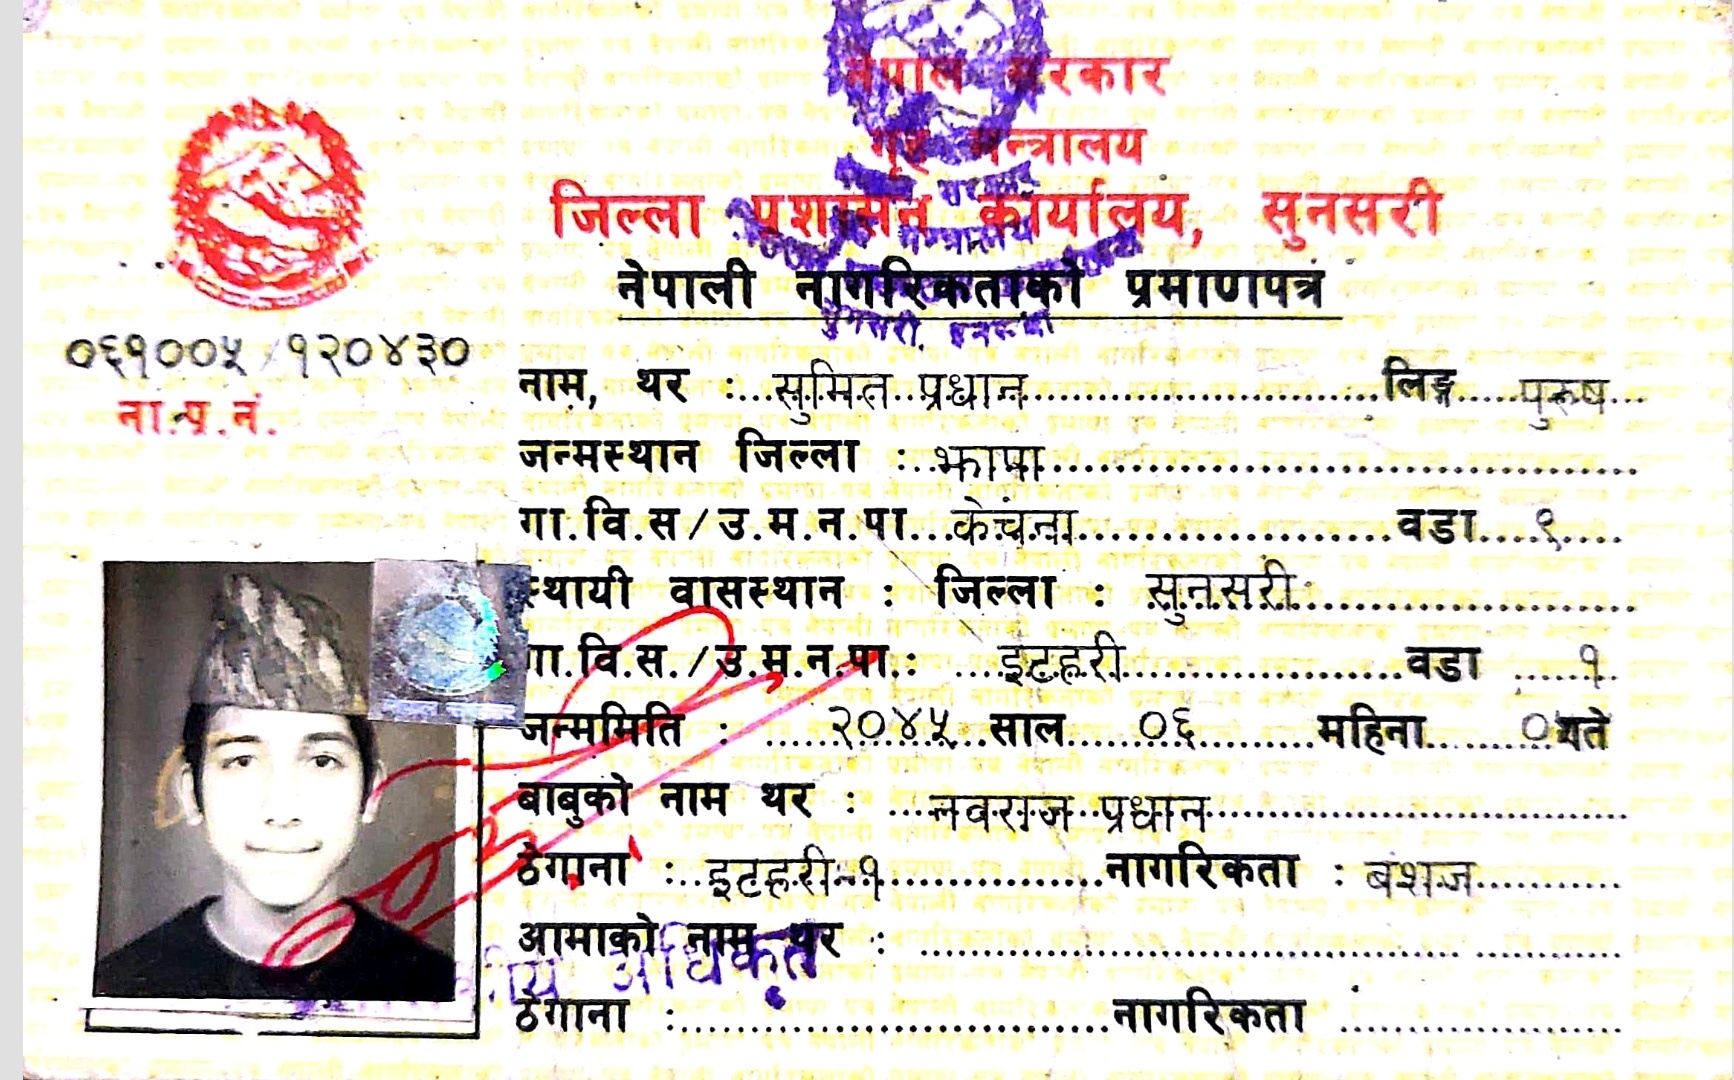 नेपाल सरकार
गृह मन्त्रालय
जिल्ला प्रशासन कार्यालय, सुनसरी
नेपाली नागरिकताको प्रमाणपत्र
सुनसरी, इनरुवा
०६१००५/१२०४३०
ना.प्र.नं.
नाम, थर : सुमित प्रधान लिङ्ग पुरुष
जन्मस्थान जिल्ला : झापा
गा.वि.स/उ.म.न.पा. केचना वडा ९
स्थायी वासस्थान : जिल्ला : सुनसरी
गा.वि.स./उ.म.न.पा.: इटहरी वडा १
जन्ममिति : २०४५ साल ०६ महिना गते
बाबुको नाम थर : नवराज प्रधान
ठेगाना : इटहरी-१ नागरिकता : बंशज
आमाको नाम थर :
अधिकृत
ठेगाना : नागरिकता